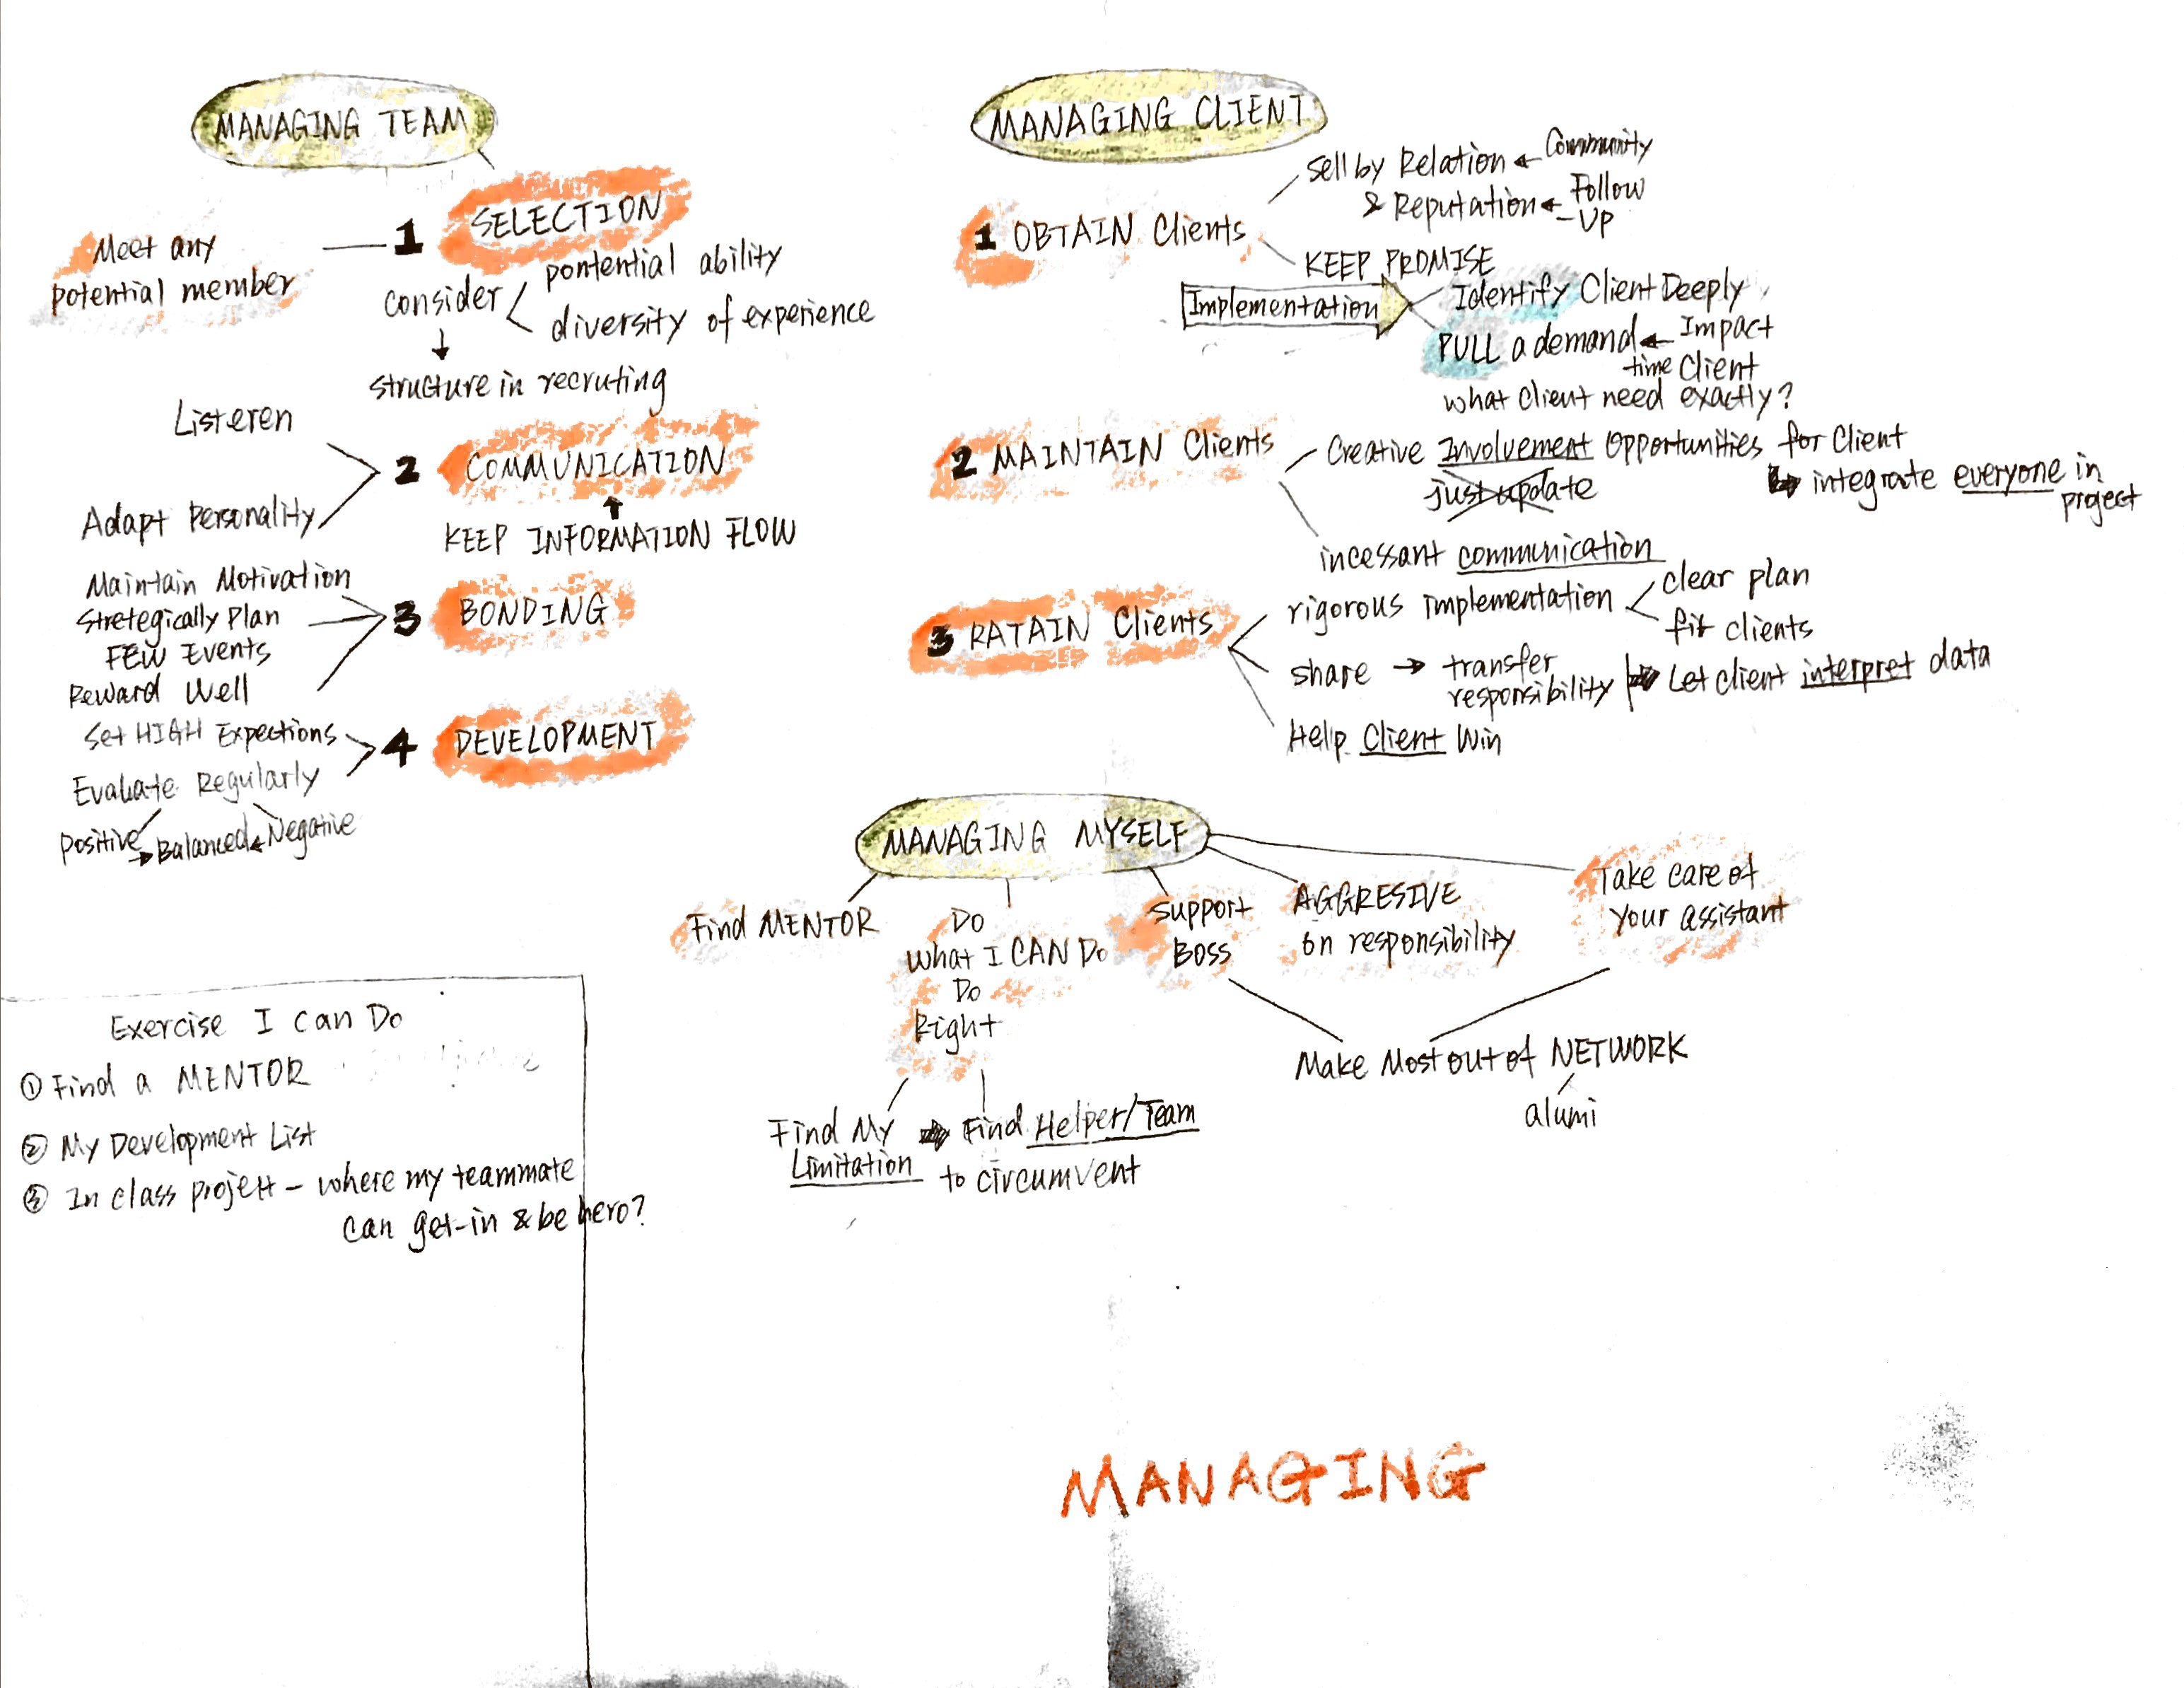 MANAGING TEAM
1 SELECTION
Meet any
potential member
consider
pontential ability
diversity of experience
structure in recruting
Listeren
Adapt Personality
2 COMMUNICATION
KEEP INFORMATION FLOW
Maintain Motivation
Stretegically Plan
FEW Events
Reward Well
3 BONDING
Set HIGH Expections
Evaluate Regularly
4 DEVELOPMENT
Positive Balanced Negative
MANAGING CLIENT
1 OBTAIN Clients
Sell by Relation Community
& Reputation Follow
-Up
KEEP PROMISE
Implementation
Identify Client Deeply
PULL a demand Impact
time Client
what Client need exactly?
2 MAINTAIN Clients
Creative Involvement Opportunities for Client
just update
integrate everyone in
project
incessant communication
3 RATAIN Clients
rigorous implementation
clear plan
fit clients
share → transfer
responsibility
Let client interpret data
Help Client Win
MANAGING MYSELF
Find MENTOR
Do
What I CAN Do
Do
Right
Support
Boss
AGGRESIVE
on responsibility
Take care of
Your assistant
Make Most out of NETWORK
alumi
Find My
Limitation
Find Helper/Team
to circumvent
Exercise I can Do
① Find a MENTOR
② My Development List
③ In class projett - where my teammate
can get-in & be hero?
MANAGING